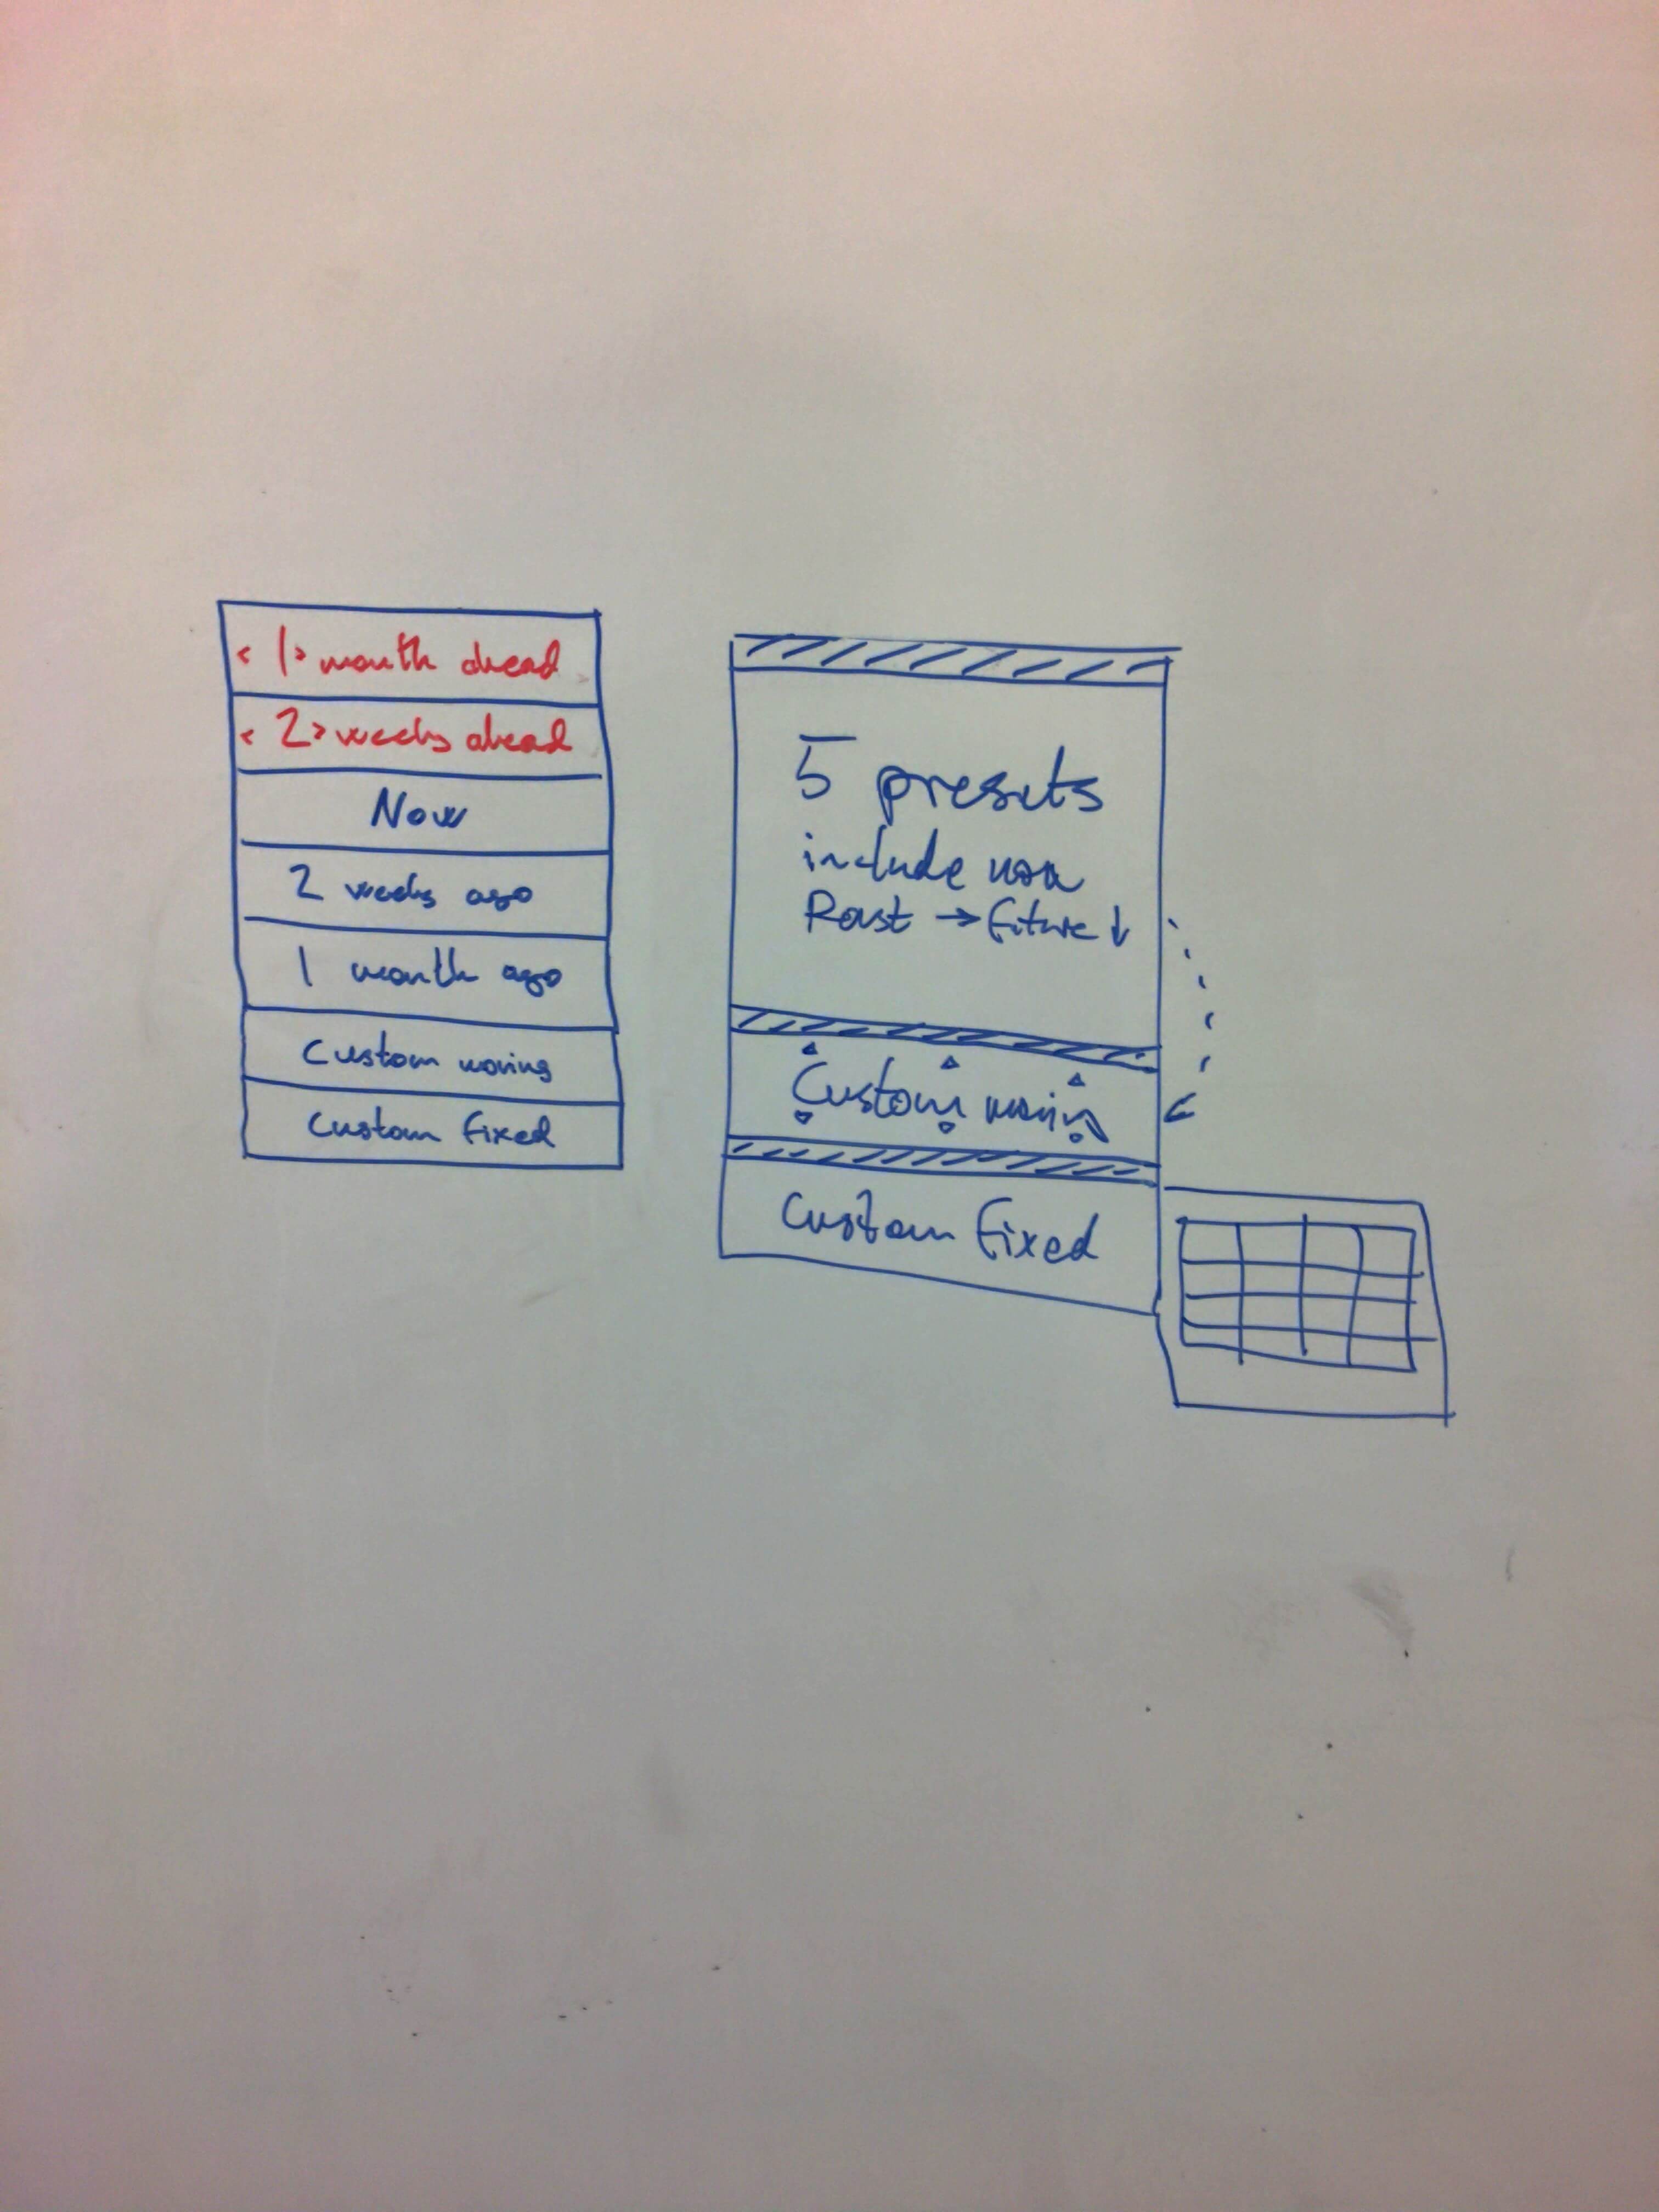 < 1 > month ahead
< 2 > weeks ahead
Now
2 weeks ago
1 month ago
Custom moving
Custom fixed
5 presets
include now
Past → future ↓
Custom moving
Custom fixed